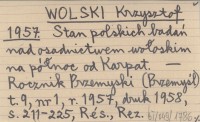 WOLSKI Krzysztof
1957 Stan polskich badań
nad osadnictwem wołoskim
na północ od Karpat. —
Rocznik Przemyski (Przemyśl)
t. 9, nr 1, r. 1957, druk 1958,
s. 211-225, Rés., Rez.